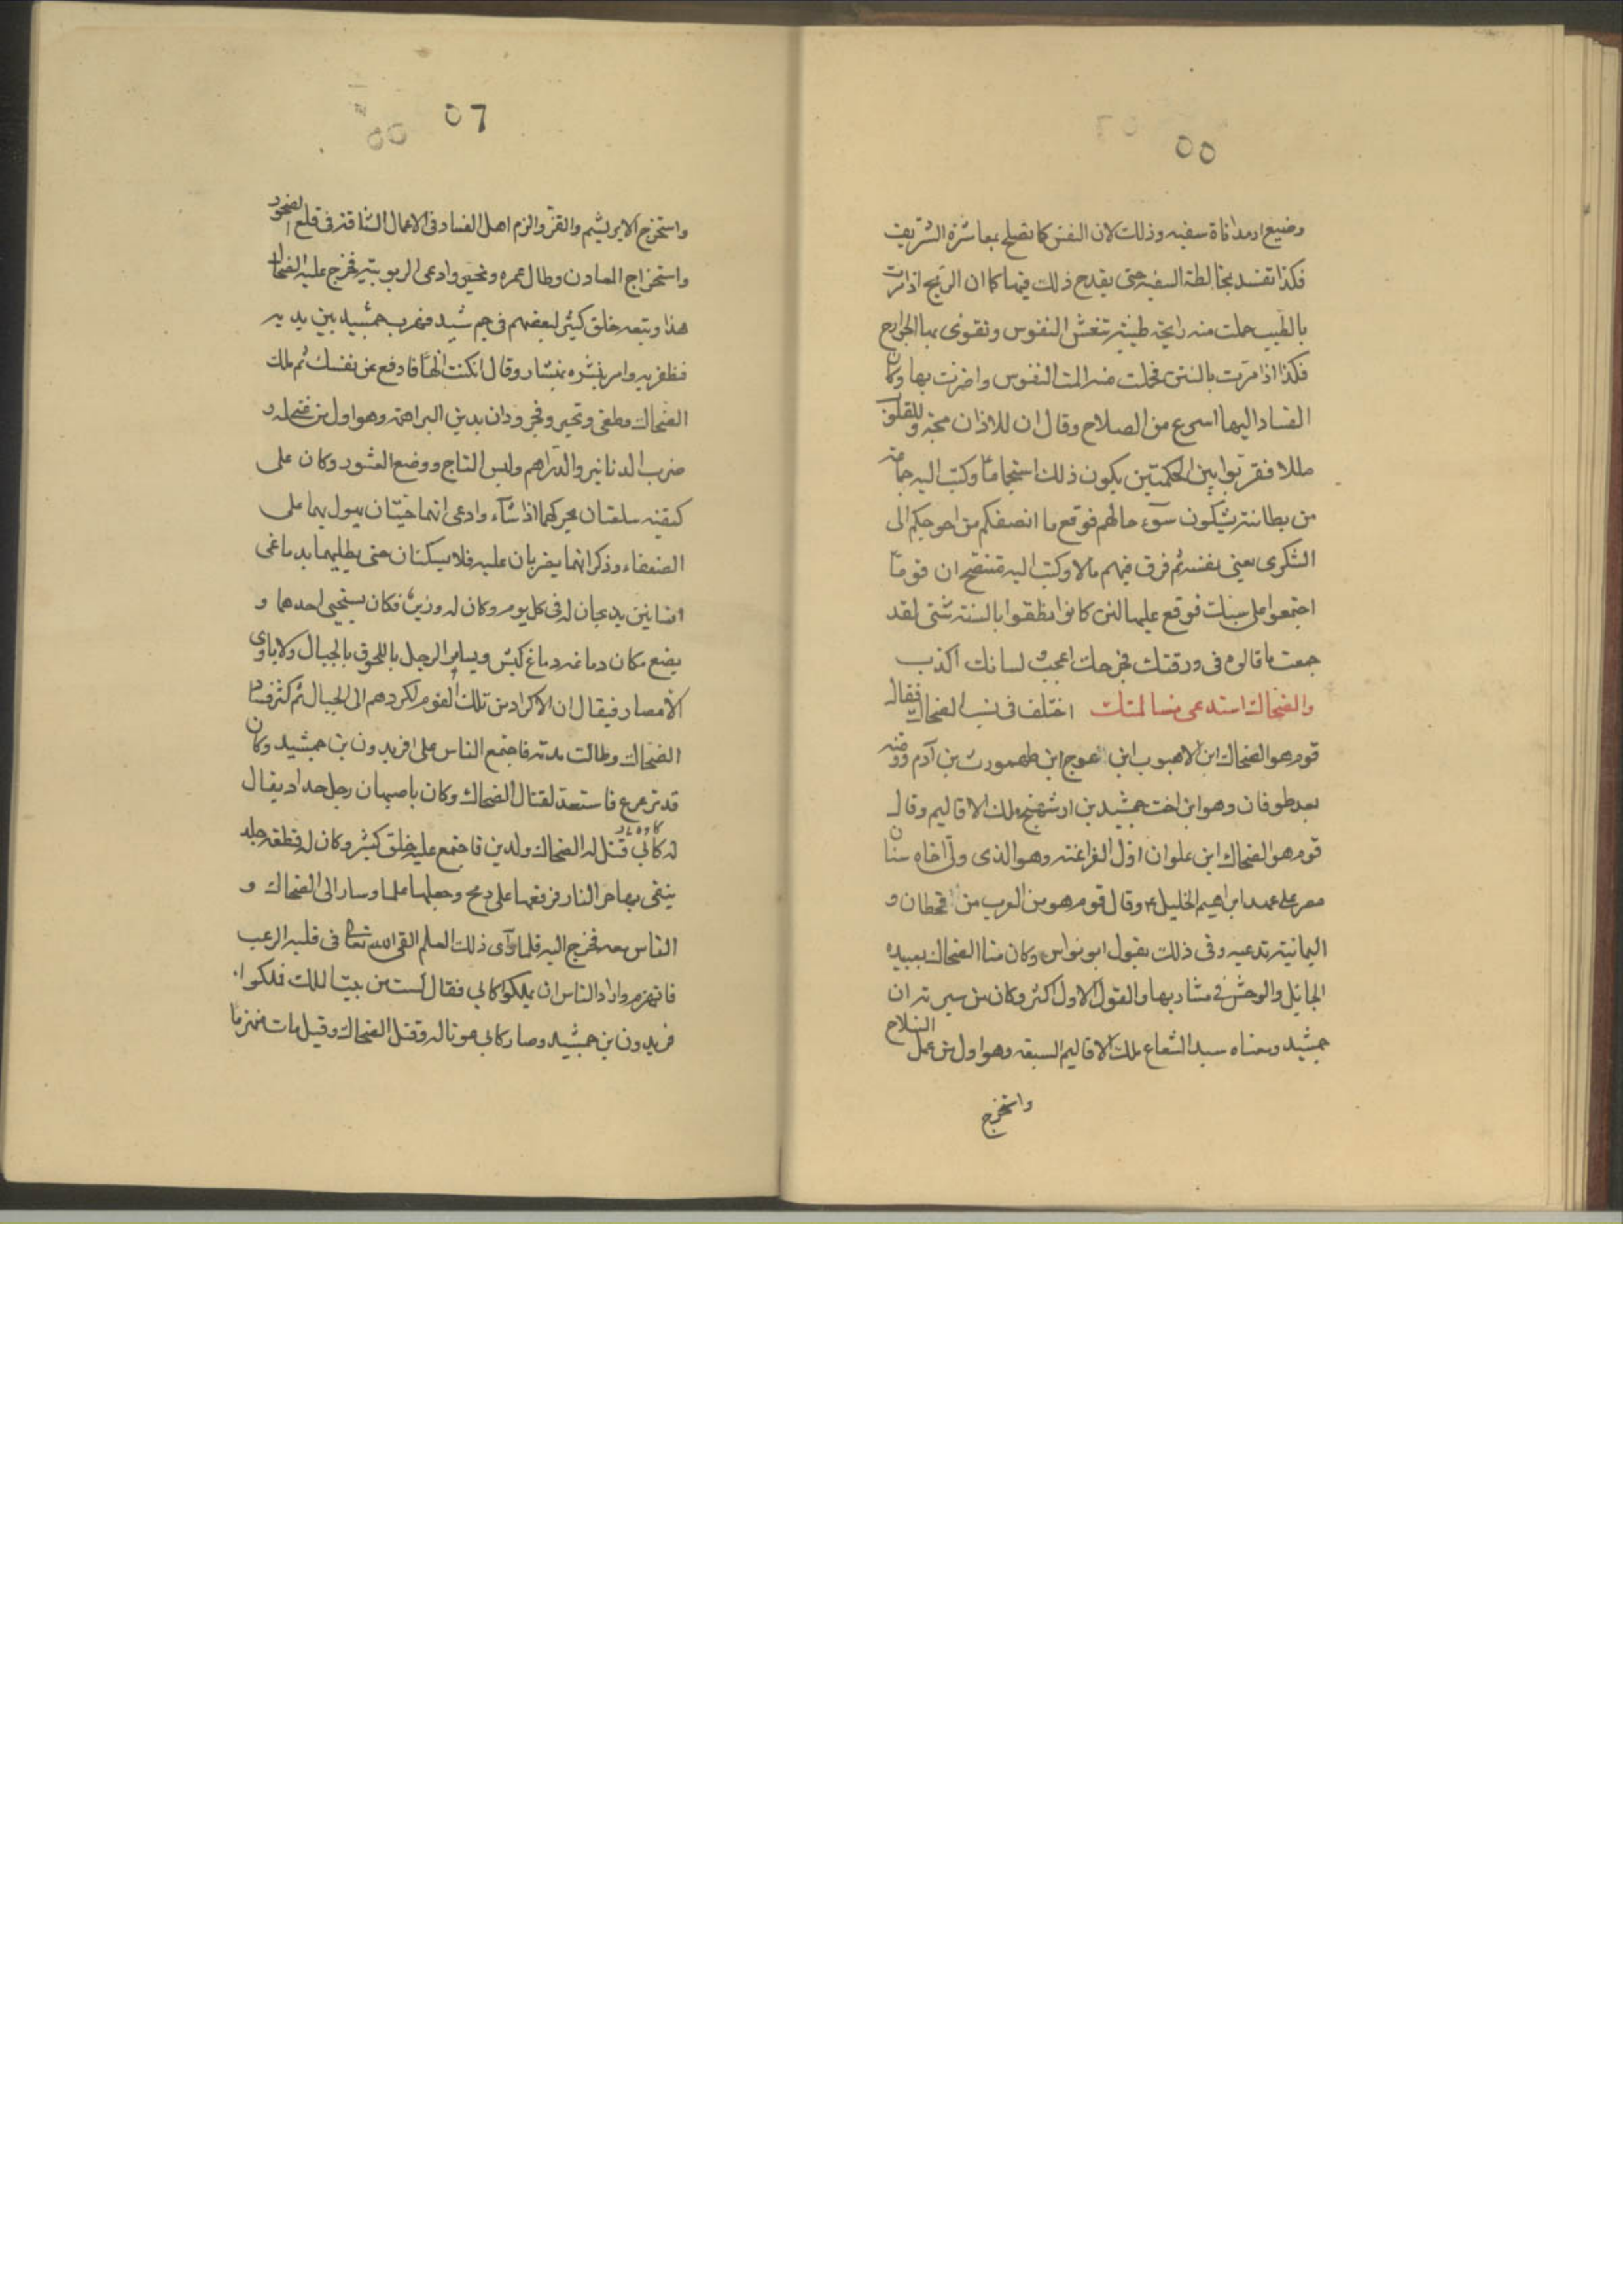 ٥٥
وضيع او مداناة سفيه وذلك لان النفس كما تصلح بمعاشرة الشريف
فكذا تفسد بمخالطة السفيه حتى يقدح ذلك فيها كما ان الريح اذا مرت
بالطيب حملت منه رايحة طيبة تنعش النفوس وتقوى بها الجوارح
فكذا اذا مرت بالنتن فحملت منه المت النفوس واضرت بها وكان
الفساد اليها اسرع من الصلاح وقال ان للاذان مجة وللقلوب
مللا ففرقوا بين الحكمتين يكون ذلك استجماما وكتب اليه جماعة
من بطانته يشكون سوء حالهم فوقع ما انصفكم من احوجكم الى
الشكوى يعنى نفسه ثم فرق فيهم مالا وكتب اليه متنصح ان قوما
اجتمعوا على سبك فوقع عليها لئن كانوا نطقوا بالسنة شتى لقد
جمعت ما قالوه فى ورقتك فجرحك اعجب ولسانك اكذب
والضحاك استدعى مسالمتك اختلف فى نسب الضحاك فقال
قوم هو الضحاك ابن الاهبوب ابن عوج ابن طهمورث بن آدم ووقته
بعد طوفان وهو ابن اخت جمشيد بن اوشهنج ملك الاقاليم وقال
قوم هو الضحاك ابن علوان اول الفراعنة وهو الذى ولّى اخاه سنان
مصر على عهد ابراهيم الخليل ع م وقال قوم هو من العرب من قحطان و
اليمانية تدعيه وفى ذلك يقول ابو نواس وكان منا الضحاك يعبده
الجايل والوحش فى مشاربها والقول الاول اكثر وكان من سيرته ان
جمشيد ومعناه سيد الشعاع ملك الاقاليم السبعة وهو اول من عمل السلاح
واستخرج
٥٦
٥٥
واستخرج الابريشم والقز والزم اهل الفساد فى الاعمال الشاقة فى قلع الصخور
واستخراج المعادن وطال عمره وتجبر وادعى الربوبية فخرج عليه الضحاك
هذا وتبعه خلق كثير لبغضهم فى جم شيد فهرب جمشيد بين يديه
فظفر به وامر بنشره بمنشار وقال ان كنت الها فادفع عن نفسك ثم ملك
الضحاك وطغى وتجبر وفجر ودان بدين البراهمة وهو اول من غنى له و
ضرب الدنانير والدراهم ولبس التاج ووضع العشور وكان على
كتفيه سلعتان يحركهما اذا شاء وادعى انهما حيتان يهول بهما على
الضعفاء وذكر انهما يضربان عليه فلا يسكنان حتى يطليهما بدماغى
انسانين يذبحان له فى كل يوم وكان له وزير فكان يستحيى احدهما و
يضع مكان دماغه دماغ كبش ويسايم الرجل باللحوق بالجبال ولا ياوى
الامصار فيقال ان الاكراد من تلك القوم لكردهم الى الجبال ثم كثر فساد
الضحاك وطالت مدته فاجتمع الناس على افريدون بن جمشيد وكان
قد ترعرع فاستعد لقتال الضحاك وكان باصبهان رجل حداد يقال
له كابى قتل له الضحاك ولدين فاجتمع عليه خلق كثير وكان له قطعة جلد
يتقى بها حر النار فرفعها على رمح وجعلها علما وسار الى الضحاك و
الناس معه فخرج اليه فلما رآى ذلك العلم القى الله تعالى فى قلبه الرعب
فانهزم واراد الناس ان يملكوا كابى فقال لست من بيت الملك فملكوا
فريدون بن جمشيد وصار كابى عونا له وقتل الضحاك وقيل مات منهزما